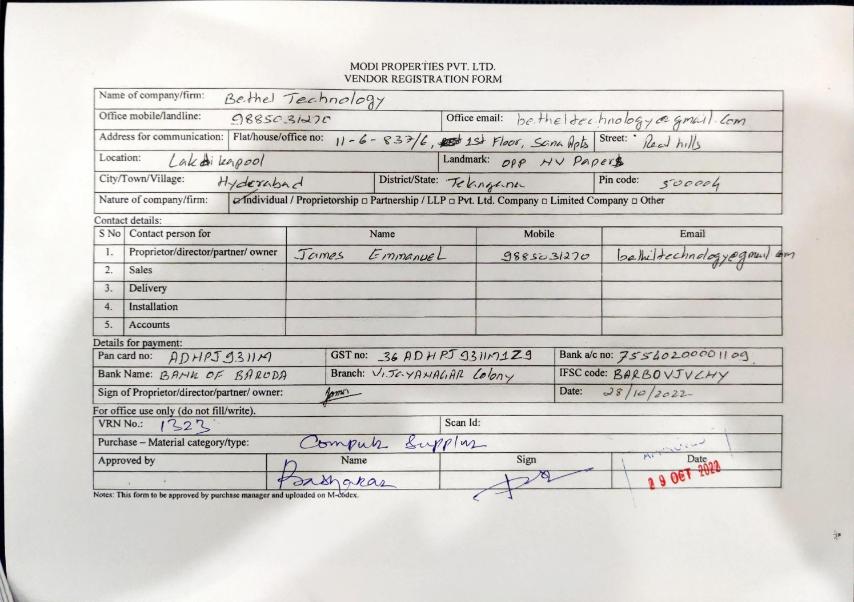 MODI PROPERTIES PVT. LTD.
VENDOR REGISTRATION FORM
Name of company/firm: Bethel Technology
Office mobile/landline: 9885031270 Office email: betheltechnology@gmail.com
Address for communication: Flat/house/office no: 11-6-837/6, 1st Floor, Sana Apts Street: Red hills
Location: Lakdikapool Landmark: opp HV Papers
City/Town/Village: Hyderabad District/State: Telangana Pin code: 500004
Nature of company/firm: ☑ Individual / Proprietorship □ Partnership / LLP □ Pvt. Ltd. Company □ Limited Company □ Other
Contact details:
S No Contact person for Name Mobile Email
1. Proprietor/director/partner/ owner James Emmanuel 9885031270 betheltechnology@gmail.com
2. Sales
3. Delivery
4. Installation
5. Accounts
Details for payment:
Pan card no: ADHPJ9311M GST no: 36ADHPJ9311M1Z9 Bank a/c no: 75560200001109
Bank Name: BANK OF BARODA Branch: VIJAYANAGAR Colony IFSC code: BARB0VJVCHY
Sign of Proprietor/director/partner/ owner: Date: 28/10/2022
For office use only (do not fill/write).
VRN No.: 1323 Scan Id:
Purchase – Material category/type:
Approved by Name Sign Date
Bashakar 29 OCT 2022
Notes: This form to be approved by purchase manager and uploaded on M-codex.